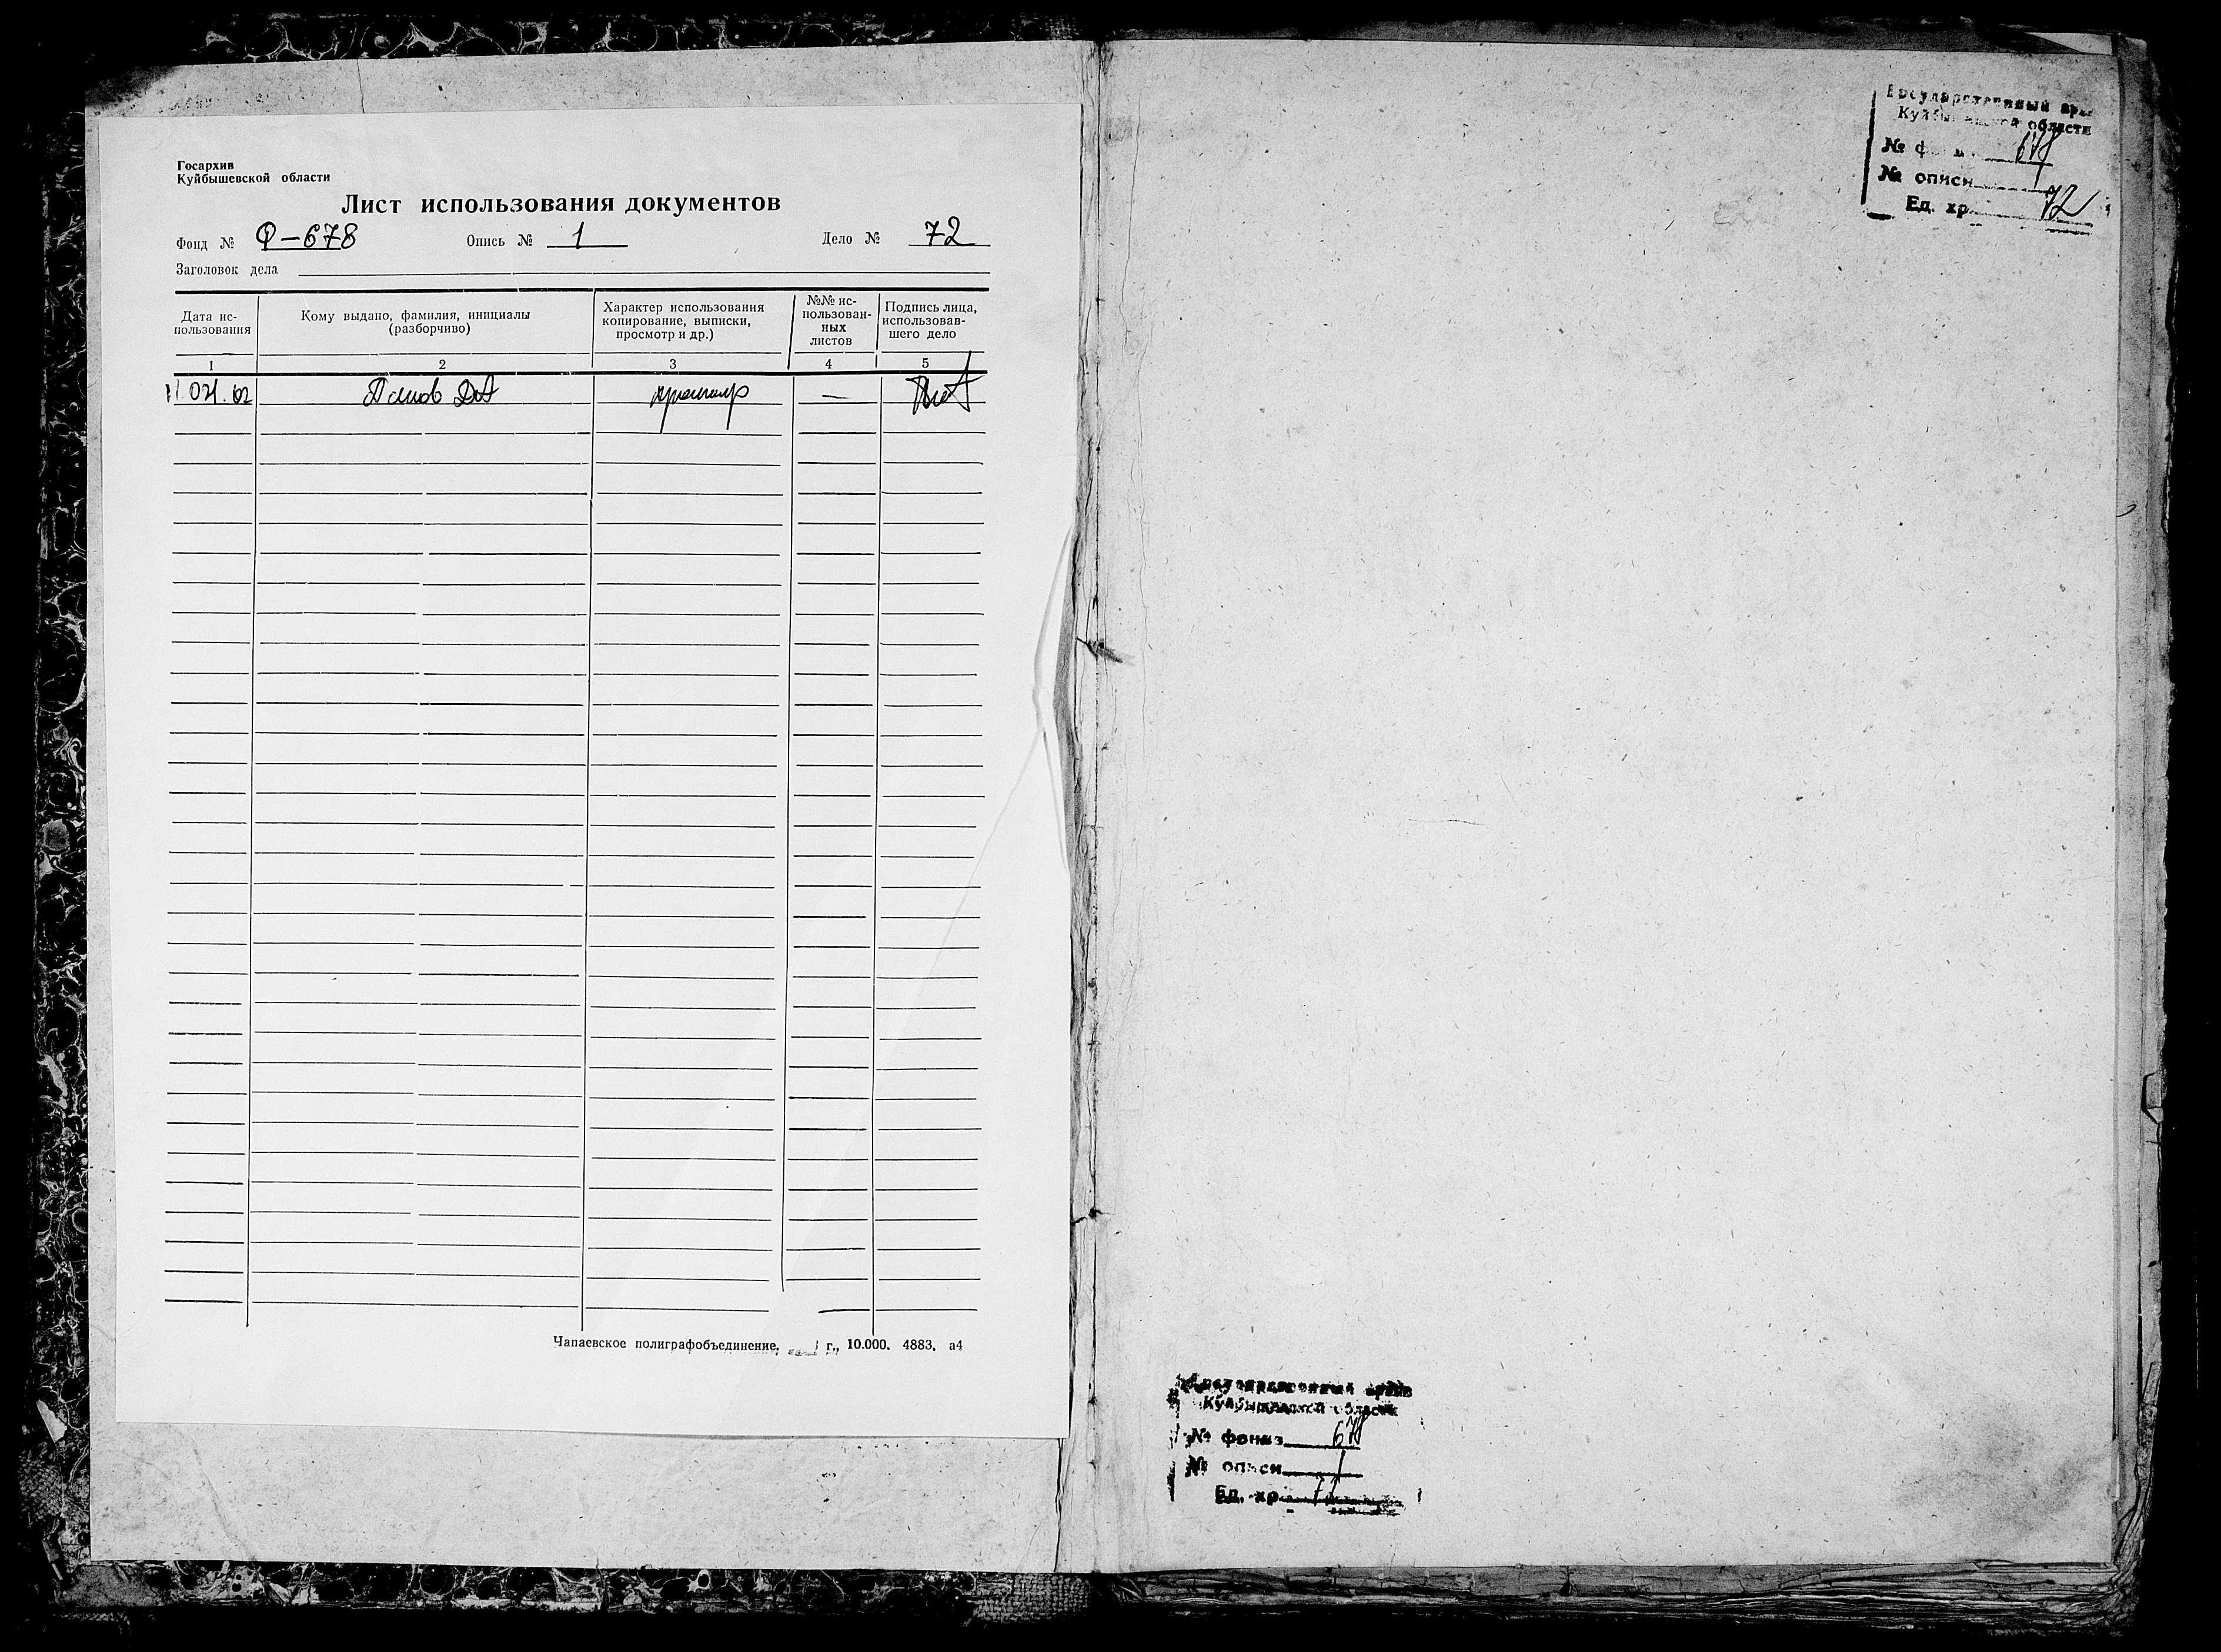 Госархив
Куйбышевской области
Лист использования документов
Фонд № Ф-678 Опись № 1 Дело № 72
Заголовок дела
Дата ис-
пользования
Кому выдано, фамилия, инициалы
(разборчиво)
Характер использования
копирование, выписки,
просмотр и др.)
№№ ис-
пользован-
ных
листов
Подпись лица,
использовав-
шего дело
1 2 3 4 5
просмотр —
Чапаевское полиграфобъединение, г., 10.000. 4883. а4
Государственный архив
Куйбышевской области
№ фонда 678
№ описи 1
Ед. хр. 72
Государственный архив
Куйбышевской области
№ фонда 678
№ описи 1
Ед. хр.